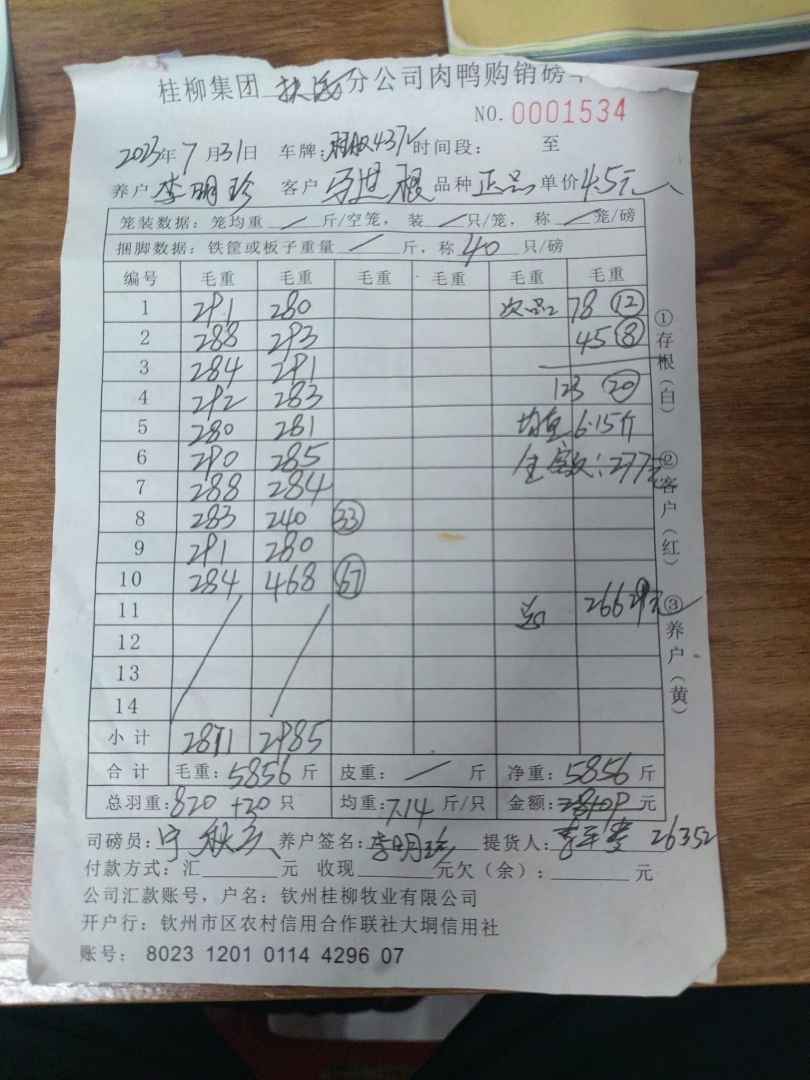 桂柳集团 扶 分公司肉鸭购销磅
NO. 0001534
2023年7月31日 车牌: 时间段: 至
养户 李明珍 客户 根 品种 正品 单价 4.5元
笼装数据: 笼均重 / 斤/空笼, 装 / 只/笼, 称 / 笼/磅
捆脚数据: 铁筐或板子重量 / 斤, 称 40 只/磅
编号 毛重 毛重 毛重 毛重 毛重 毛重
1 291 280 次品: 78 ⑫
2 288 293 45 ⑧
3 284 291
4 292 283 123 ⑳
5 280 281 均重 6.15斤
6 290 285 金额: 277元
7 288 284
8 283 240 33
9 291 280
10 284 468 67
11 总 26629元
12
13
14
小计 2871 2985
合计 毛重: 5856 斤 皮重: / 斤 净重: 5856 斤
总羽重: 820 +20 只 均重: 7.14 斤/只 金额: 元
司磅员: 宁秋 养户签名: 李明珍 提货人: 26352
付款方式: 汇 元 收现 元欠(余): 元
公司汇款账号, 户名: 钦州桂柳牧业有限公司
开户行: 钦州市区农村信用合作联社大垌信用社
账号: 8023 1201 0114 4296 07
①存根(白) ②客户(红) ③养户(黄)